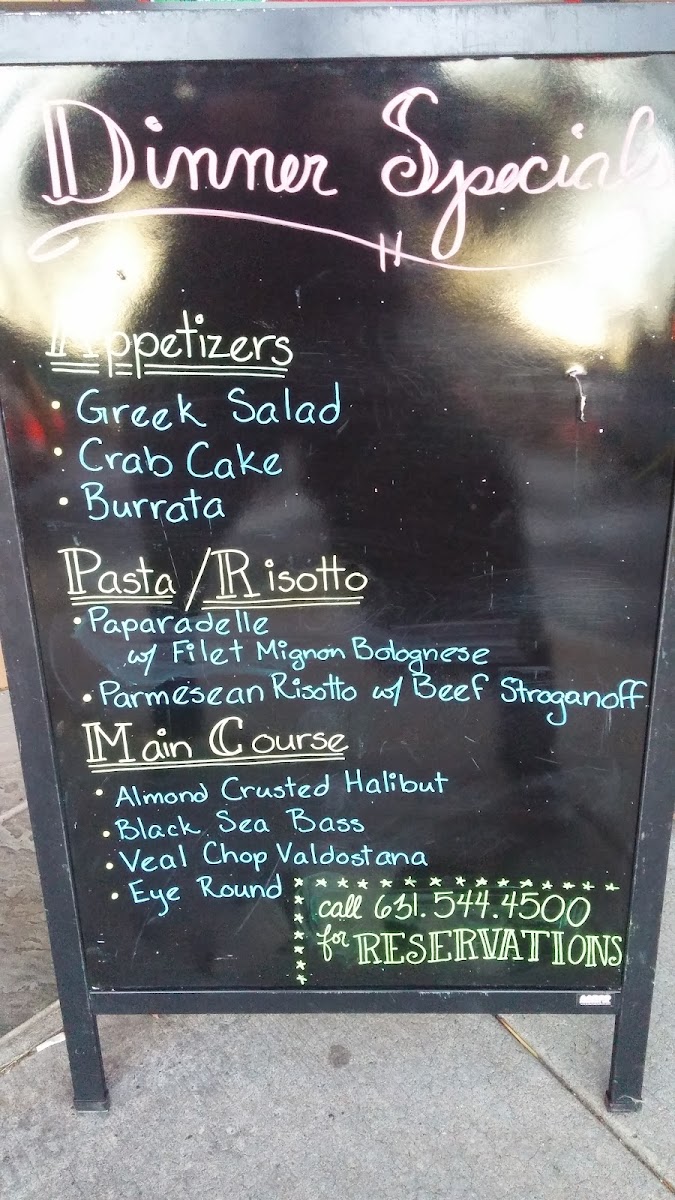 Dinner Specials
Appetizers
• Greek Salad
• Crab Cake
• Burrata
Pasta / Risotto
• Paparadelle
w/ Filet Mignon Bolognese
• Parmesean Risotto w/ Beef Stroganoff
Main Course
• Almond Crusted Halibut
• Black Sea Bass
• Veal Chop Valdostana
• Eye Round
call 631.544.4500
for RESERVATIONS